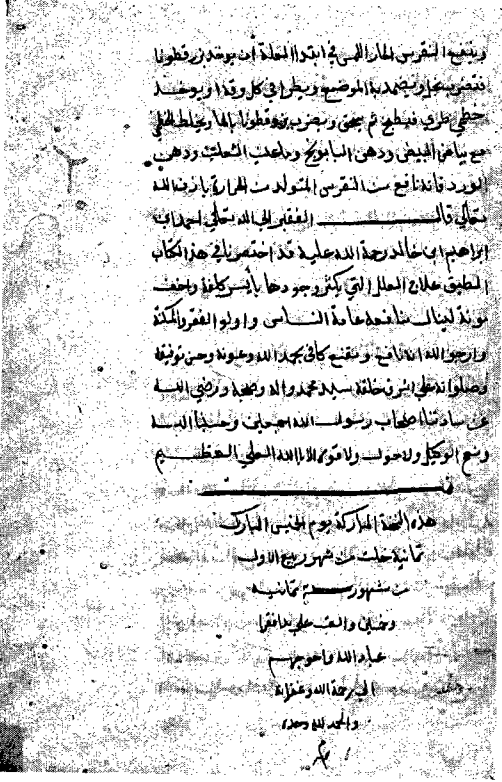 وينفع النقرس الحار اللمس في ابتدا العلة ان يوخذ بزرقطونا
فتضرب بخل ويضمد به الموضع ويطرا في كل وقت او يوخذ
خطمي طري فيطبخ ثم يدق ويضرب ببزرقطونا بالما ويخلط الخطمي
مع بياض البيض ودهن البابونج وما عنب الثعلب ودهن
الورد فانه نافع من النقرس المتولد من الحرارة باذن الله
تعالى قال الفقير الى الله تعالى احمد ابن
ابراهيم ابن خالد رحمة الله عليه قد اختصرنا في هذا الكتاب
اللطيف علاج العلل التي يكثر وجودها بأيسر كلفة واخف
مونة لينال منافعه عامة الناس واولو الفقر والمسكنة
وارجو الله انه نافع ومقنع كافي بحمد الله وعونه وحسن توفيقه
وصلواته على اشرف خلقه سيد محمد واله وصحبه ورضي الله
عن سادتنا اصحاب رسول الله اجمعين وحسبنا الله
ونعم الوكيل ولا حول ولا قوة الا بالله العلي العظيم
هذه النسخة المباركة يوم الخميس المبارك
ثمانية خلت من شهر ربيع الاول
من شهور سنة ثمانيه
وخمسين والف على يد افقر
عباد الله واحوجهم
الى رحمة الله وغفرانه
والحمد لله وحده